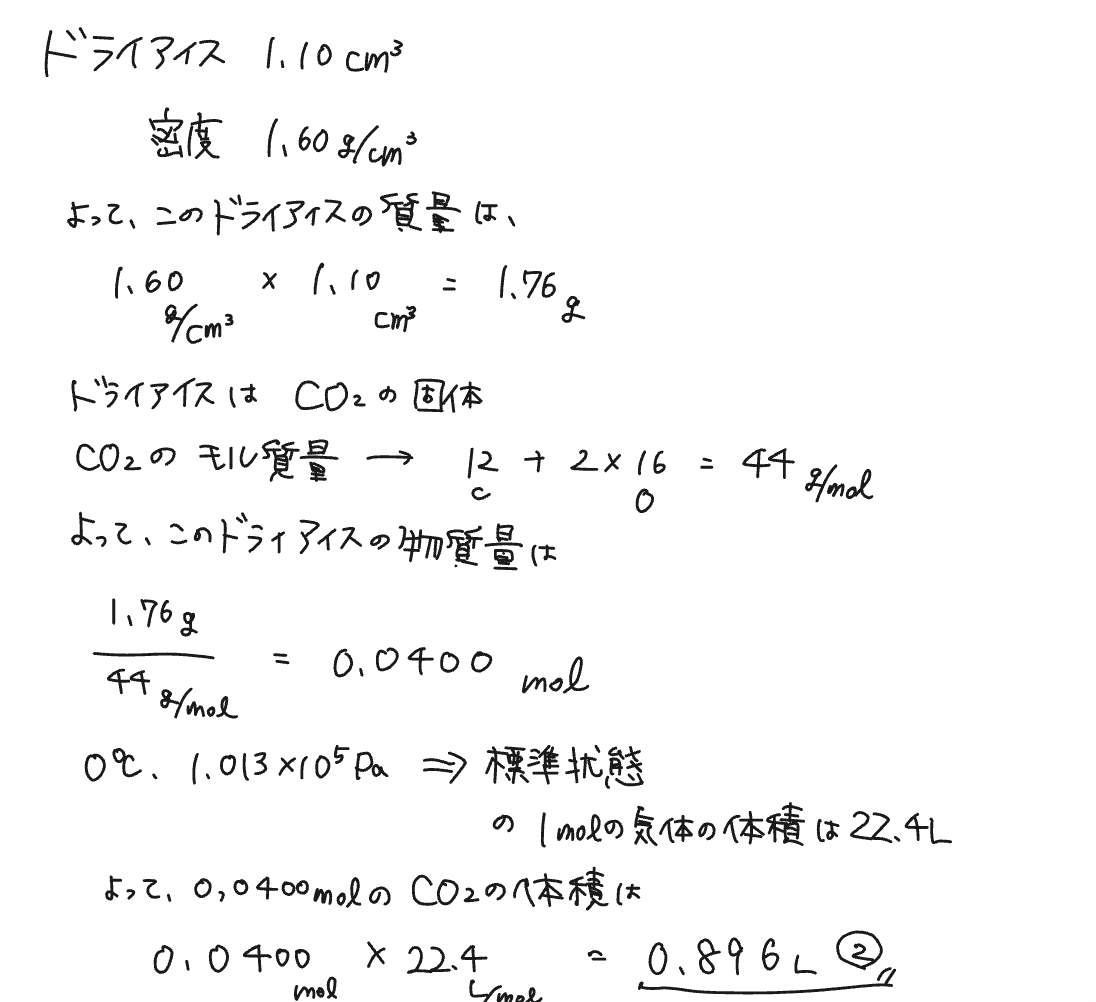 ドライアイス 1.10 cm³
密度 1.60 g/cm³
よって、このドライアイスの質量は、
1.60 g/cm³ × 1.10 cm³ = 1.76 g
ドライアイスは CO₂の固体
CO₂の モル質量 → 12 + 2×16 = 44 g/mol
C O
よって、このドライアイスの物質量は
1.76 g
44 g/mol = 0.0400 mol
0℃、1.013×10⁵Pa ⇒ 標準状態
の 1molの気体の体積は22.4L
よって、0.0400molのCO₂の体積は
0.0400 mol × 22.4 L/mol = 0.896L ②